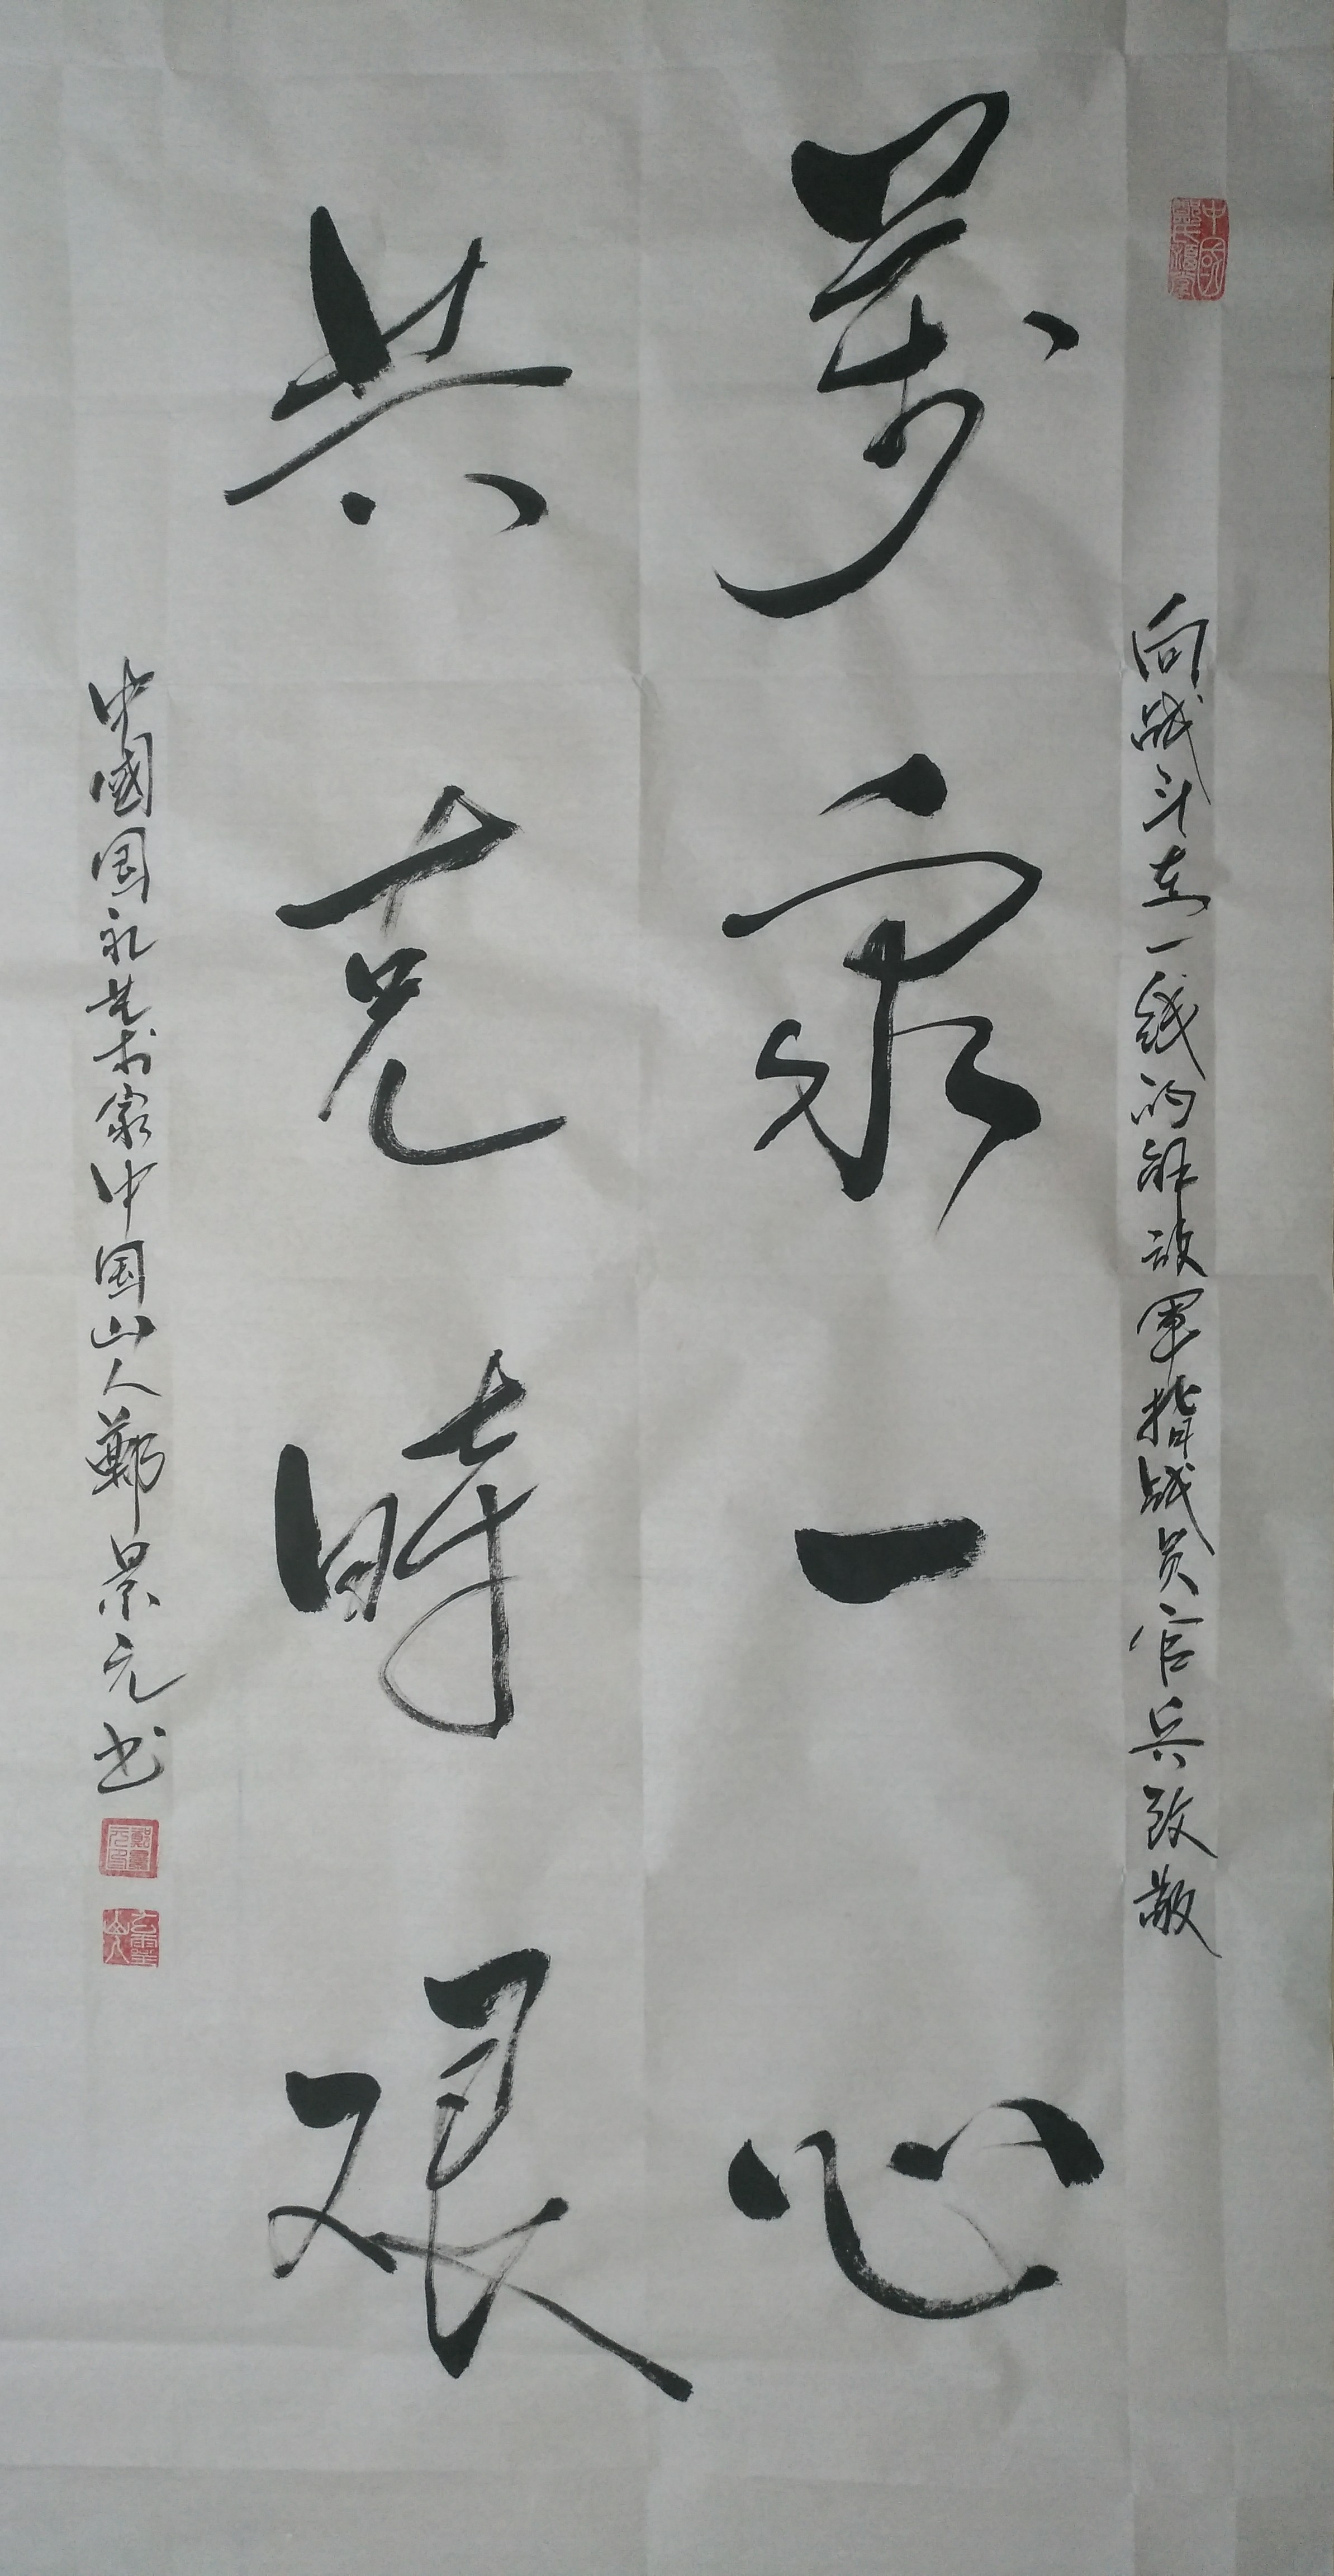 向战斗在一线的解放军指战员官兵致敬
萬衆一心
共克時艰
中國国礼艺术家中国山人鄭景元书